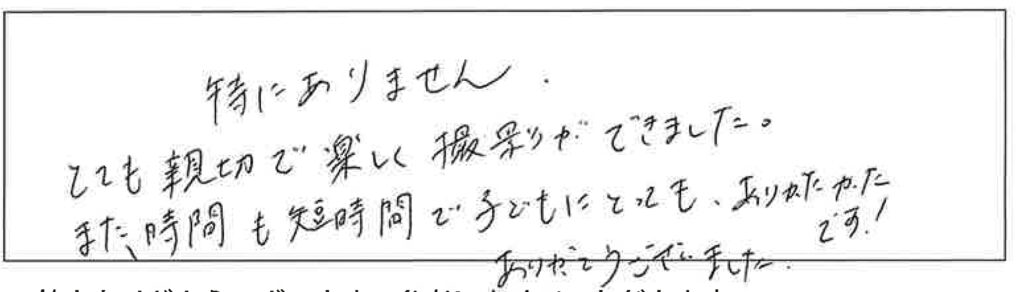 特にありません.
とても親切で楽しく撮影ができました。
また、時間も短時間で子どもにとっても、ありがたかった
です!
ありがとうございました.